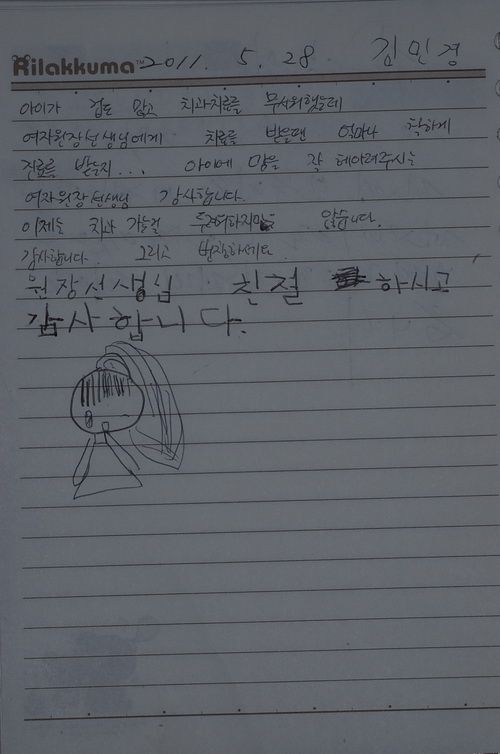 Rilakkuma™ 2011. 5. 28 김민경
아이가 겁도 많고 치과치료를 무서워했는데
여자원장선생님에게 치료를 받은땐 얼마나 착하게
진료를 받는지... 아이에 맘을 잘 헤아려주시는
여자원장선생님 감사합니다.
이제는 치과 가는걸 두려워하지 않습니다.
감사합니다. 그리고 번창하세요
원장선생님 친절 하시고
감사합니다.